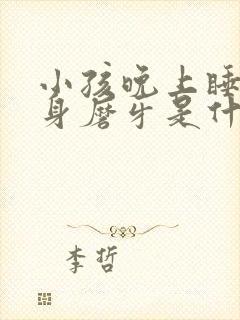 小孩晚上睡
身磨牙是什
李哲